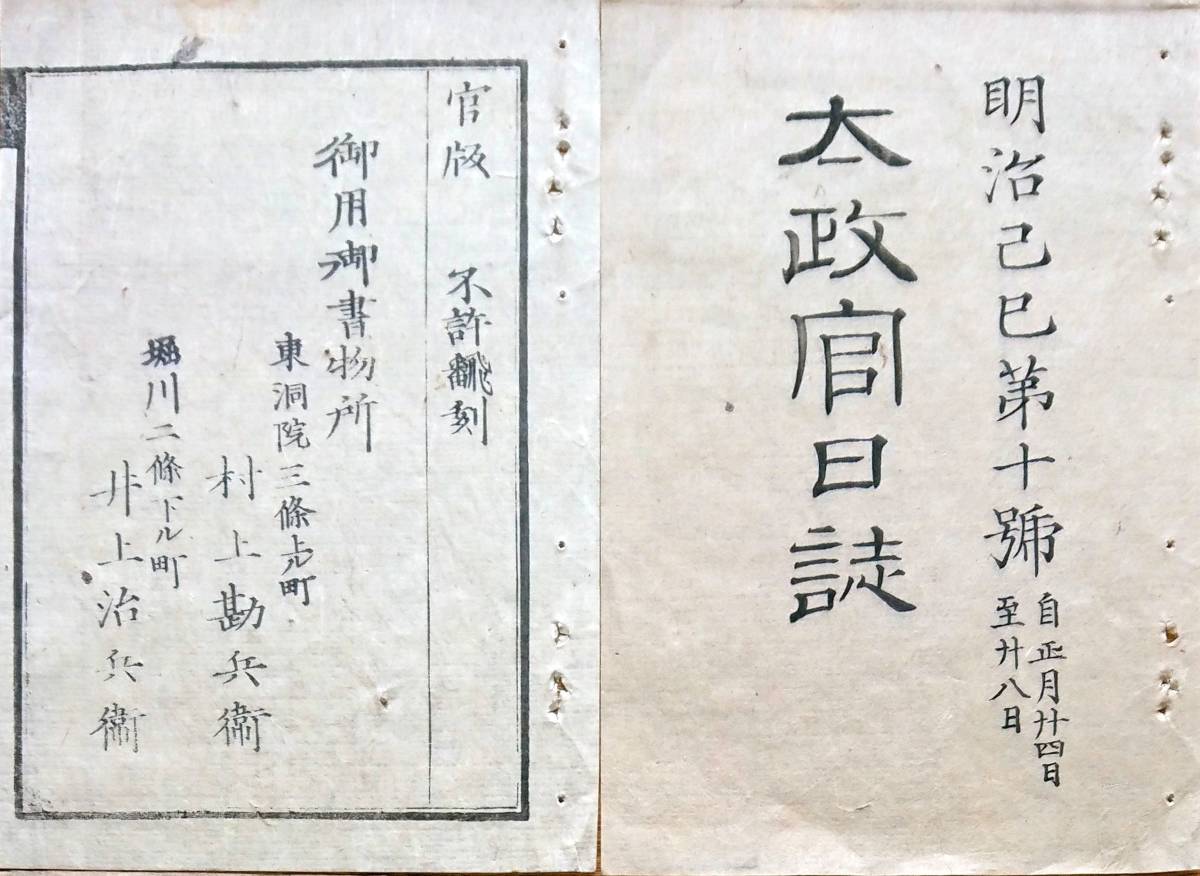 明治己巳第十號
自正月廿四日
至廿八日
太政官日誌
官版 不許翻刻
御用御書物所
東洞院三條上ル町
村上勘兵衞
堀川二條下ル町
井上治兵衞